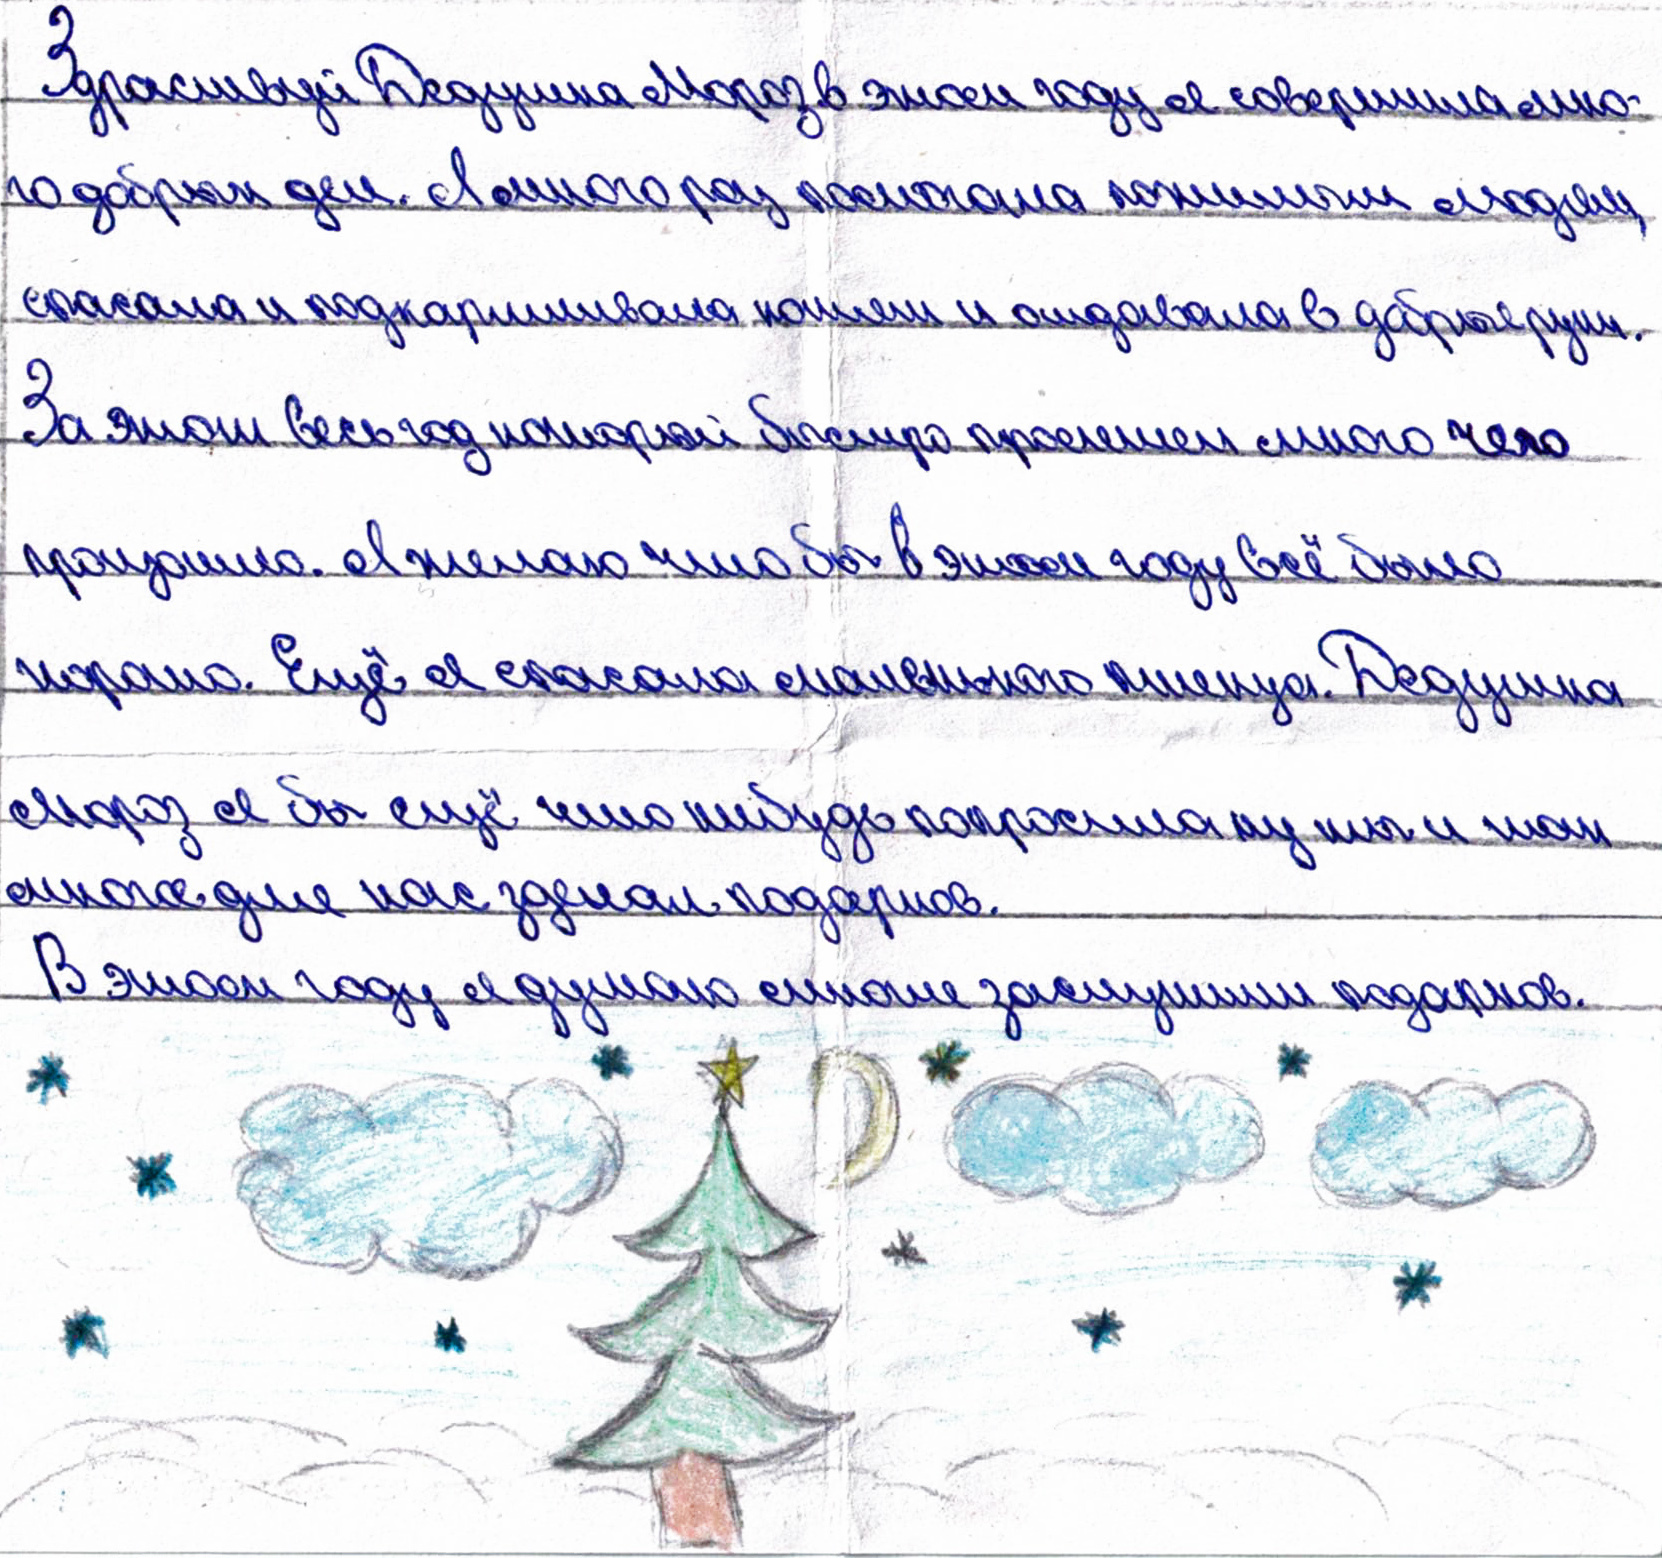 Здраствуй Дедушка Мороз в этом году я совершила мно-
го добрых дел. Я много раз помогала пожилым людям,
спасала и подкармливала кошек и отдавала в добрые руки.
За этот весь год который быстро пролетел много чего
произошло. Я желаю что бы в этом году всё было
хорошо. Ещё я спасала маленького птенца. Дедушка
Мороз я бы ещё что нибудь попросила ну ты и так
много для нас зделал подарков.
В этом году я думаю многие заслужили подарков.